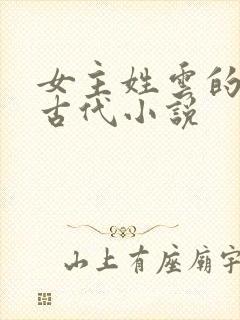 女主姓雲的
古代小說
山上有座廟宇